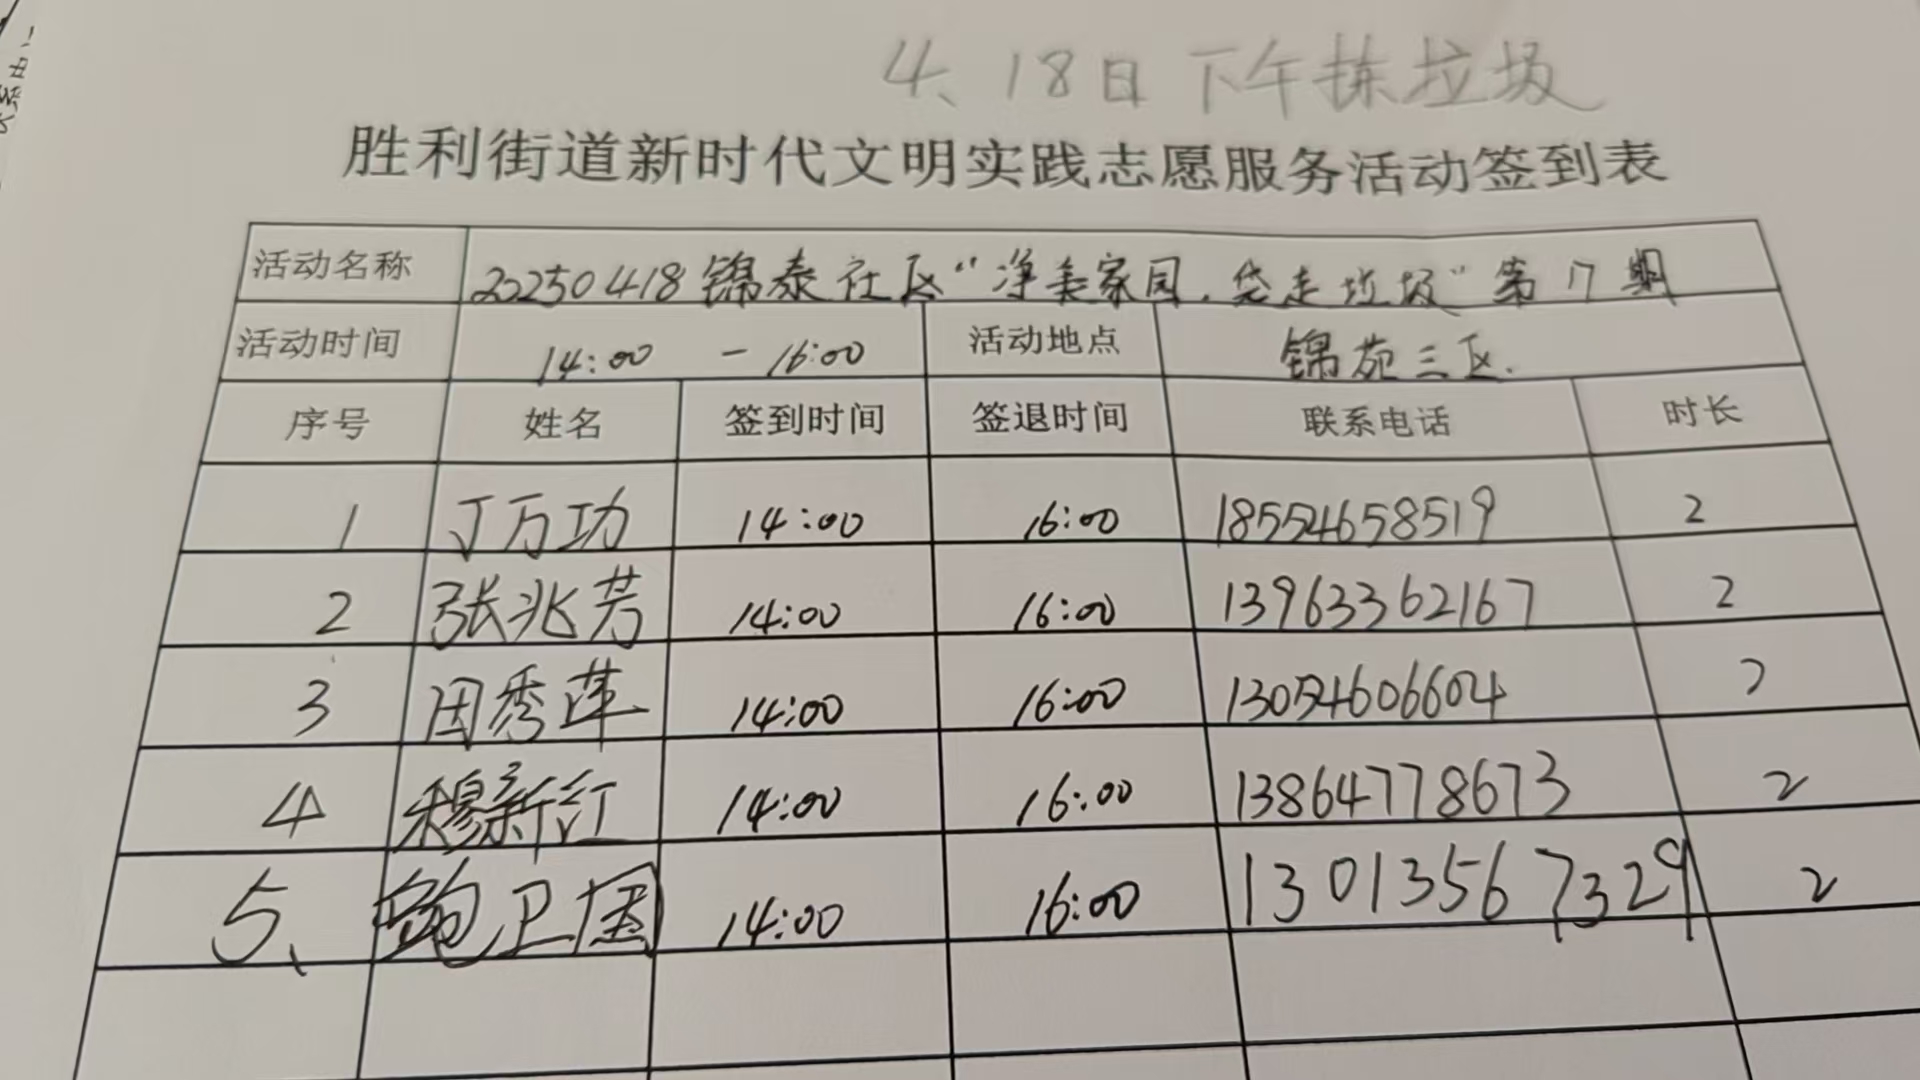 4、18日下午拣垃圾
胜利街道新时代文明实践志愿服务活动签到表
活动名称 20250418锦泰社区“净美家园，袋走垃圾”第17期
活动时间 14:00 - 16:00 活动地点 锦苑三区.
序号 姓名 签到时间 签退时间 联系电话 时长
1 丁万功 14:00 16:00 18554658519 2
2 张兆芳 14:00 16:00 13963362167 2
3 田秀莲 14:00 16:00 13054606604 2
4 穆新红 14:00 16:00 13864778673 2
5、 鲍卫国 14:00 16:00 13013567329 2